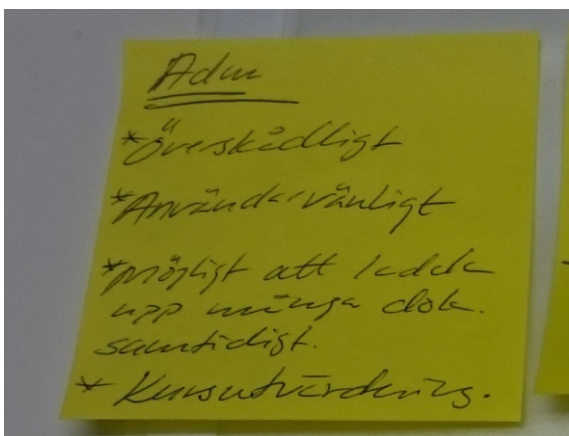 Adm
*Överskådligt
*Användarvänligt
*möjligt att ladda
upp många dok.
samtidigt.
* Kursutvärdering.